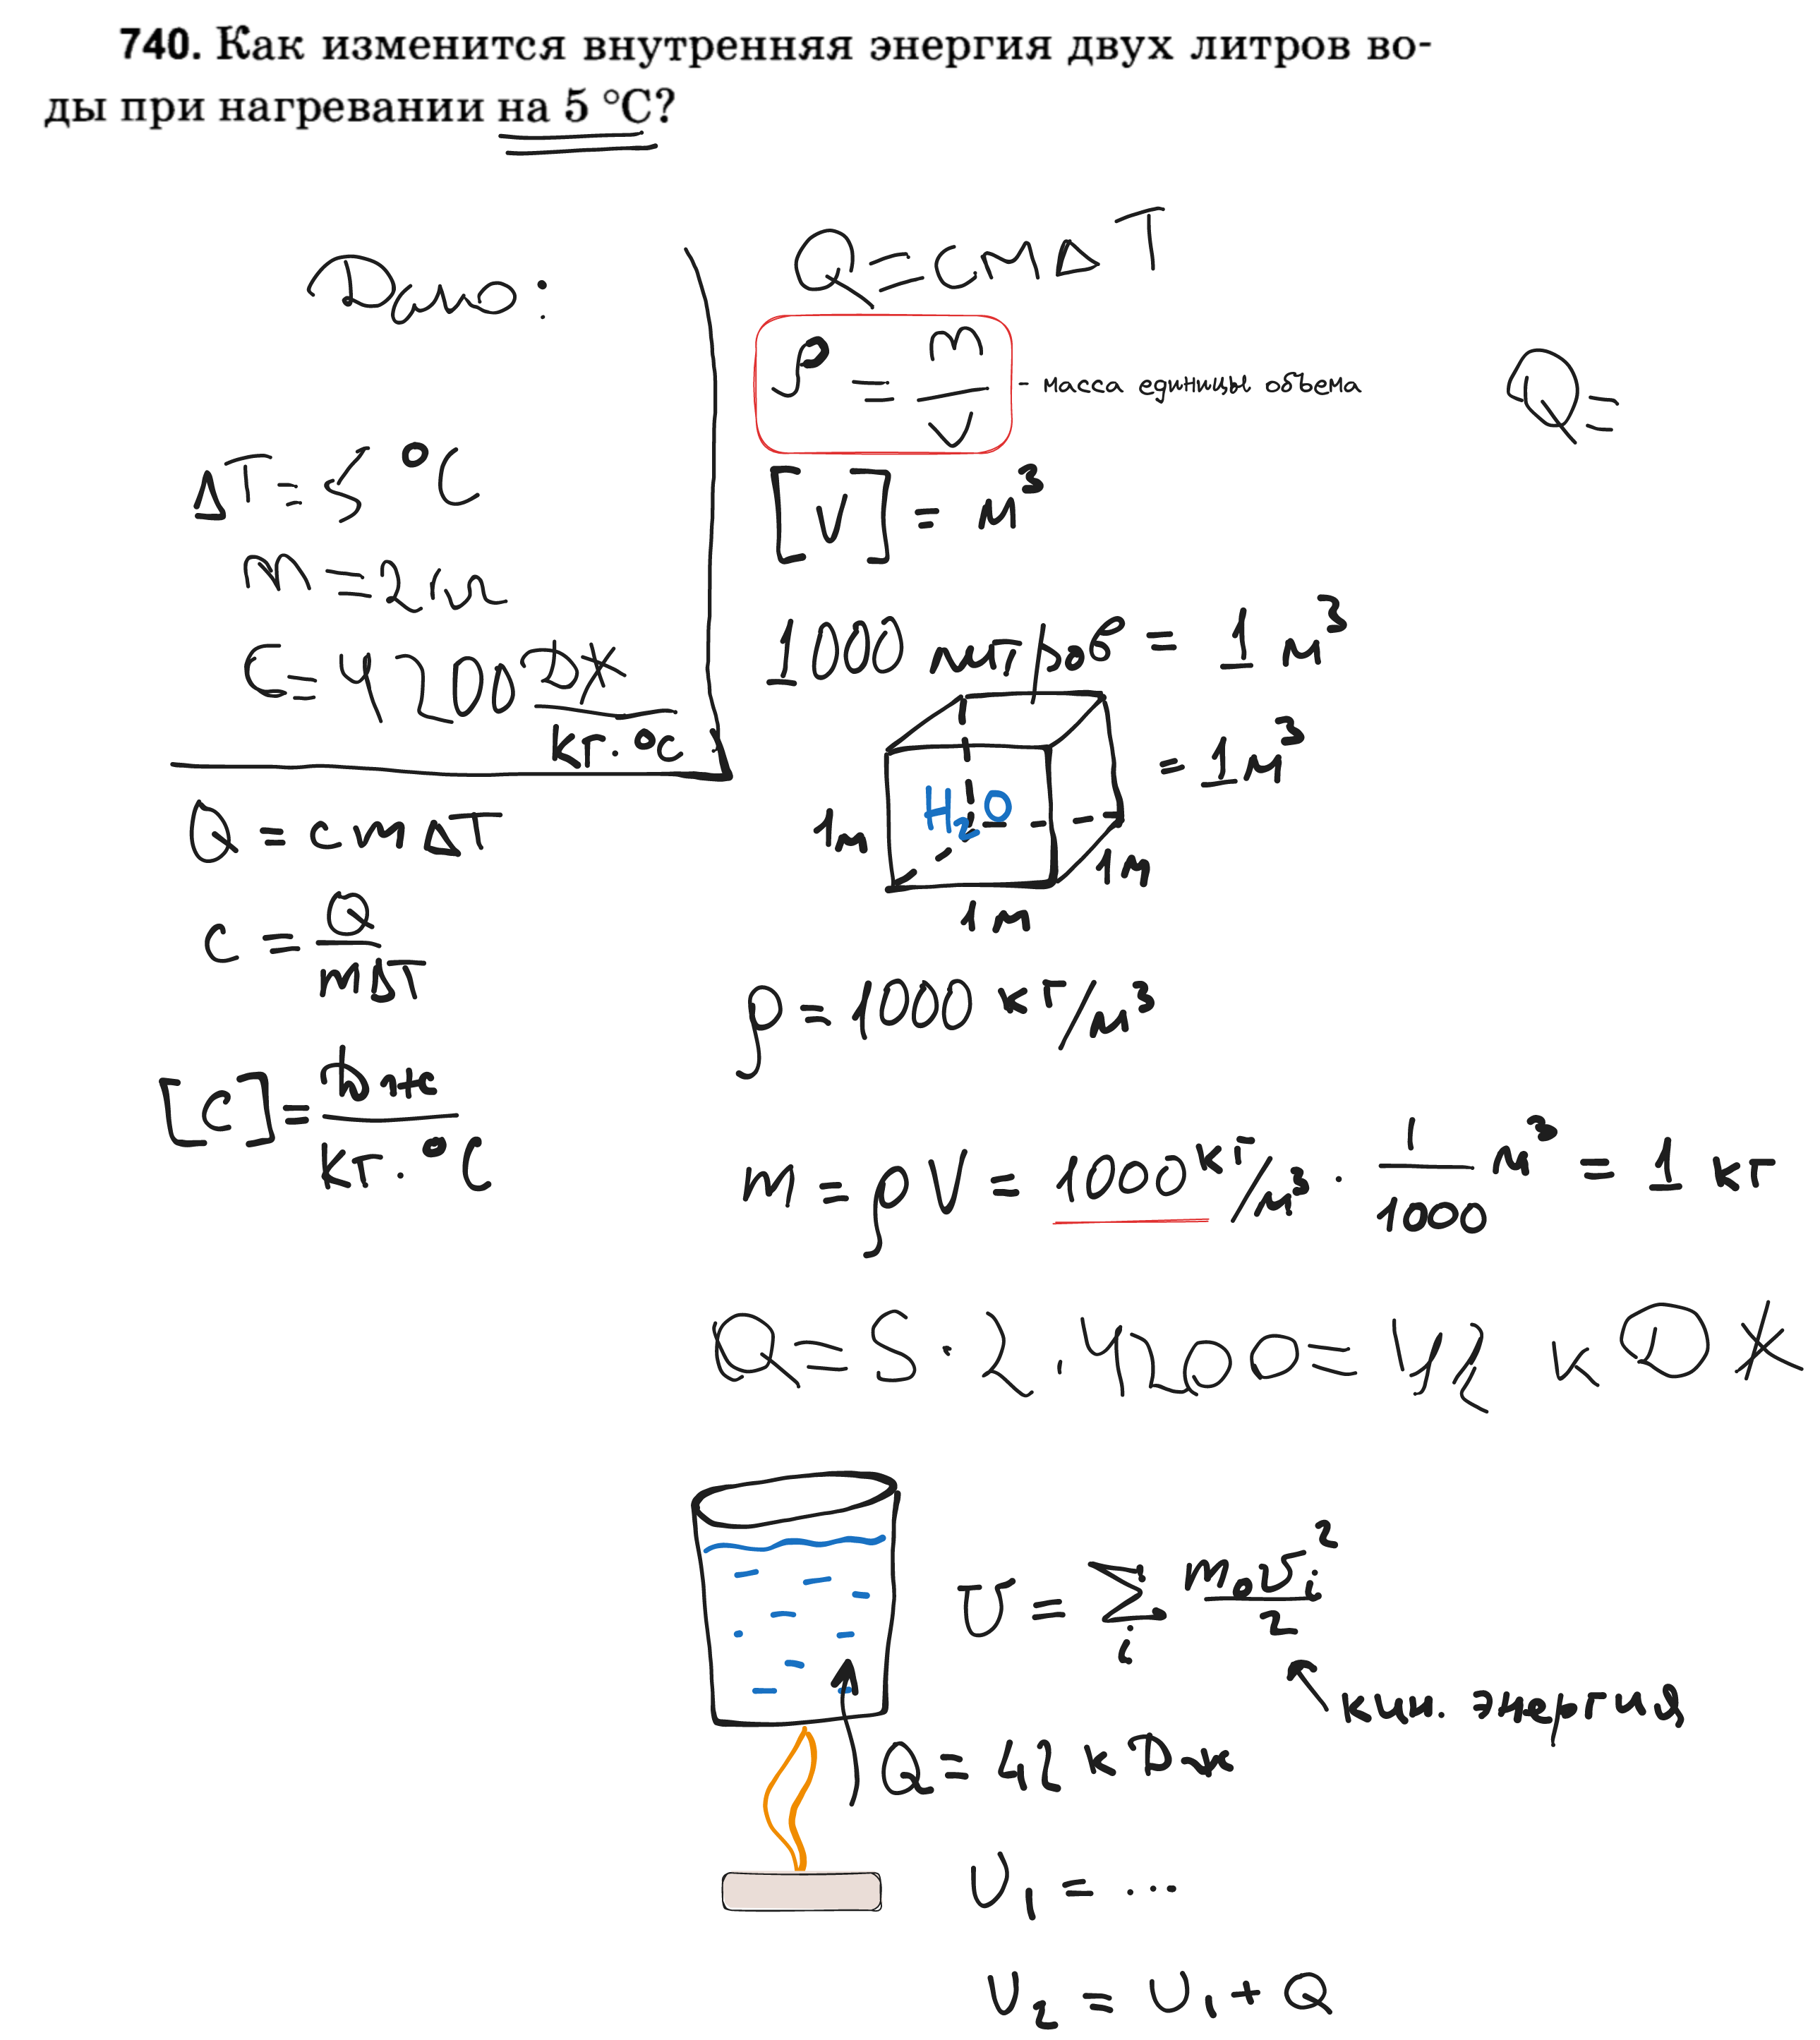 740. Как изменится внутренняя энергия двух литров во-
ды при нагревании на 5 °C?
Дано:
ΔT = 5 °C
m = 2 кг
C = 4200 Дж/кг·°C
Q = cmΔT
c = Q/mΔT
[C] = Дж/кг·°C
Q = cmΔT
ρ = m/V - масса единицы объема
Q =
[V] = м³
1000 литров = 1 м³
H₂O
= 1 м³
1м
1м
1м
ρ = 1000 кг/м³
m = ρV = 1000 кг/м³ · 1/1000 м³ = 1 кг
Q = 5·2·4200 = 42 кДж
U = Σ i m₀υᵢ²/2
кин. энергия
Q = 42 кДж
U₁ = ...
U₂ = U₁ + Q